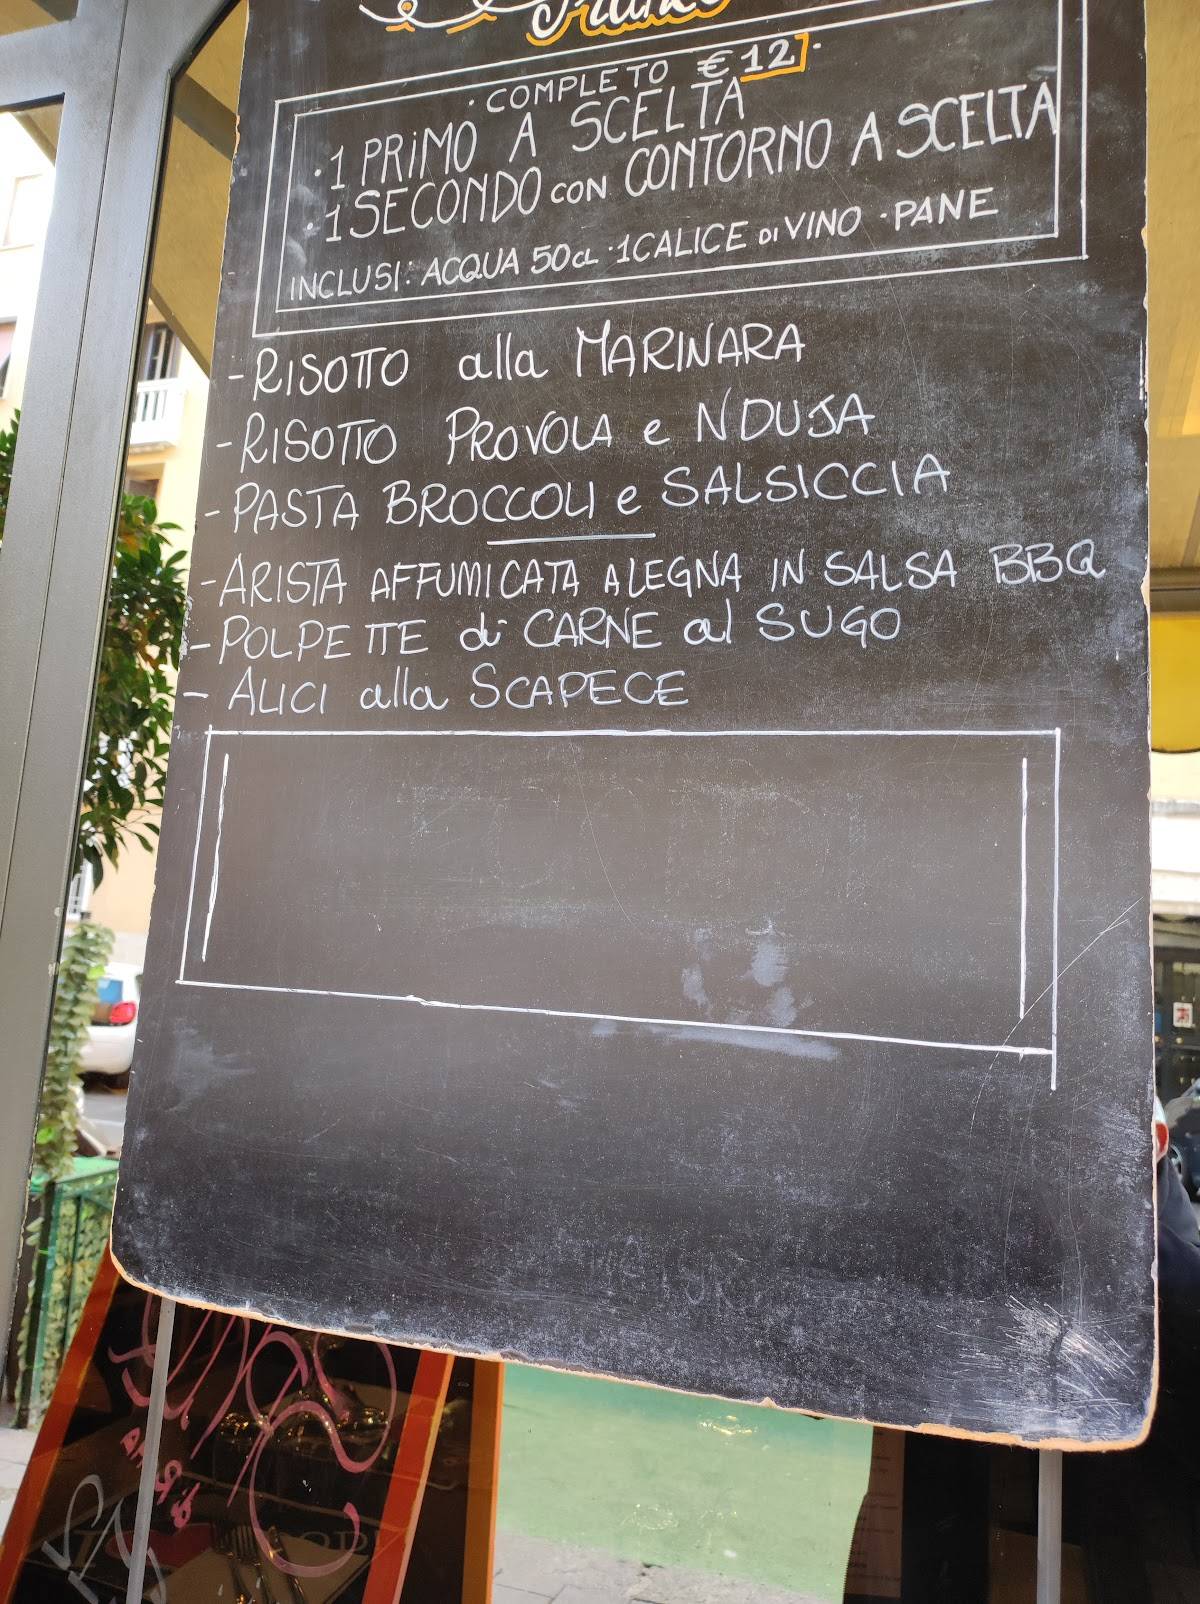 COMPLETO €12
· 1 PRIMO A SCELTA
· 1 SECONDO CON CONTORNO A SCELTA
INCLUSI: ACQUA 50CL · 1 CALICE di VINO · PANE
- RISOTTO alla MARINARA
- RISOTTO PROVOLA e NDUJA
- PASTA BROCCOLI e SALSICCIA
- ARISTA AFFUMICATA A LEGNA IN SALSA BBQ
- POLPETTE di CARNE al SUGO
- ALICI alla SCAPECE